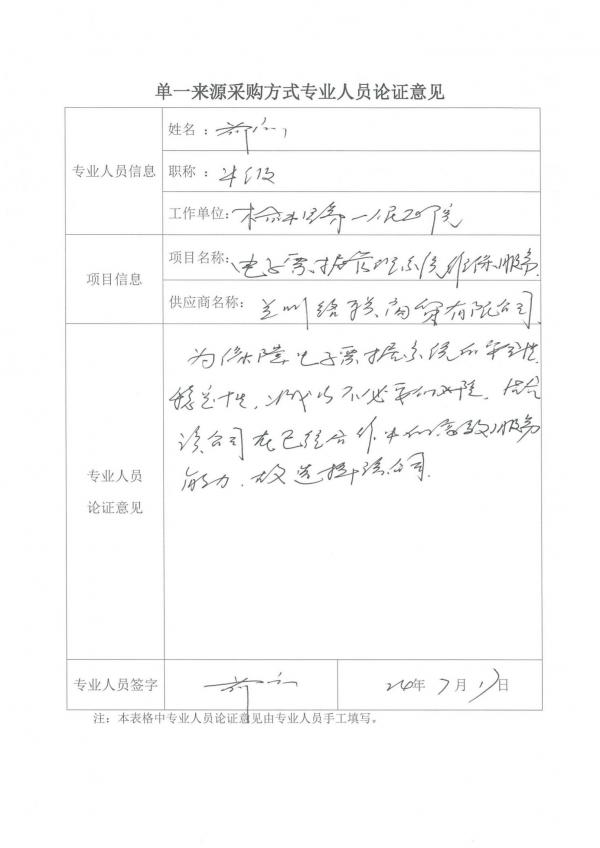 单一来源采购方式专业人员论证意见
专业人员信息
姓名：
职称：
工作单位：第一人民医院
项目信息
项目名称：电子票据管理系统维保服务
供应商名称：兰州络联商贸有限公司
为保障电子票据系统的安全性
稳定性，减少不必要的风险，结合
该公司在已经合作中的高效服务
能力，故选择该公司。
专业人员
论证意见
专业人员签字
24年7月17日
注：本表格中专业人员论证意见由专业人员手工填写。